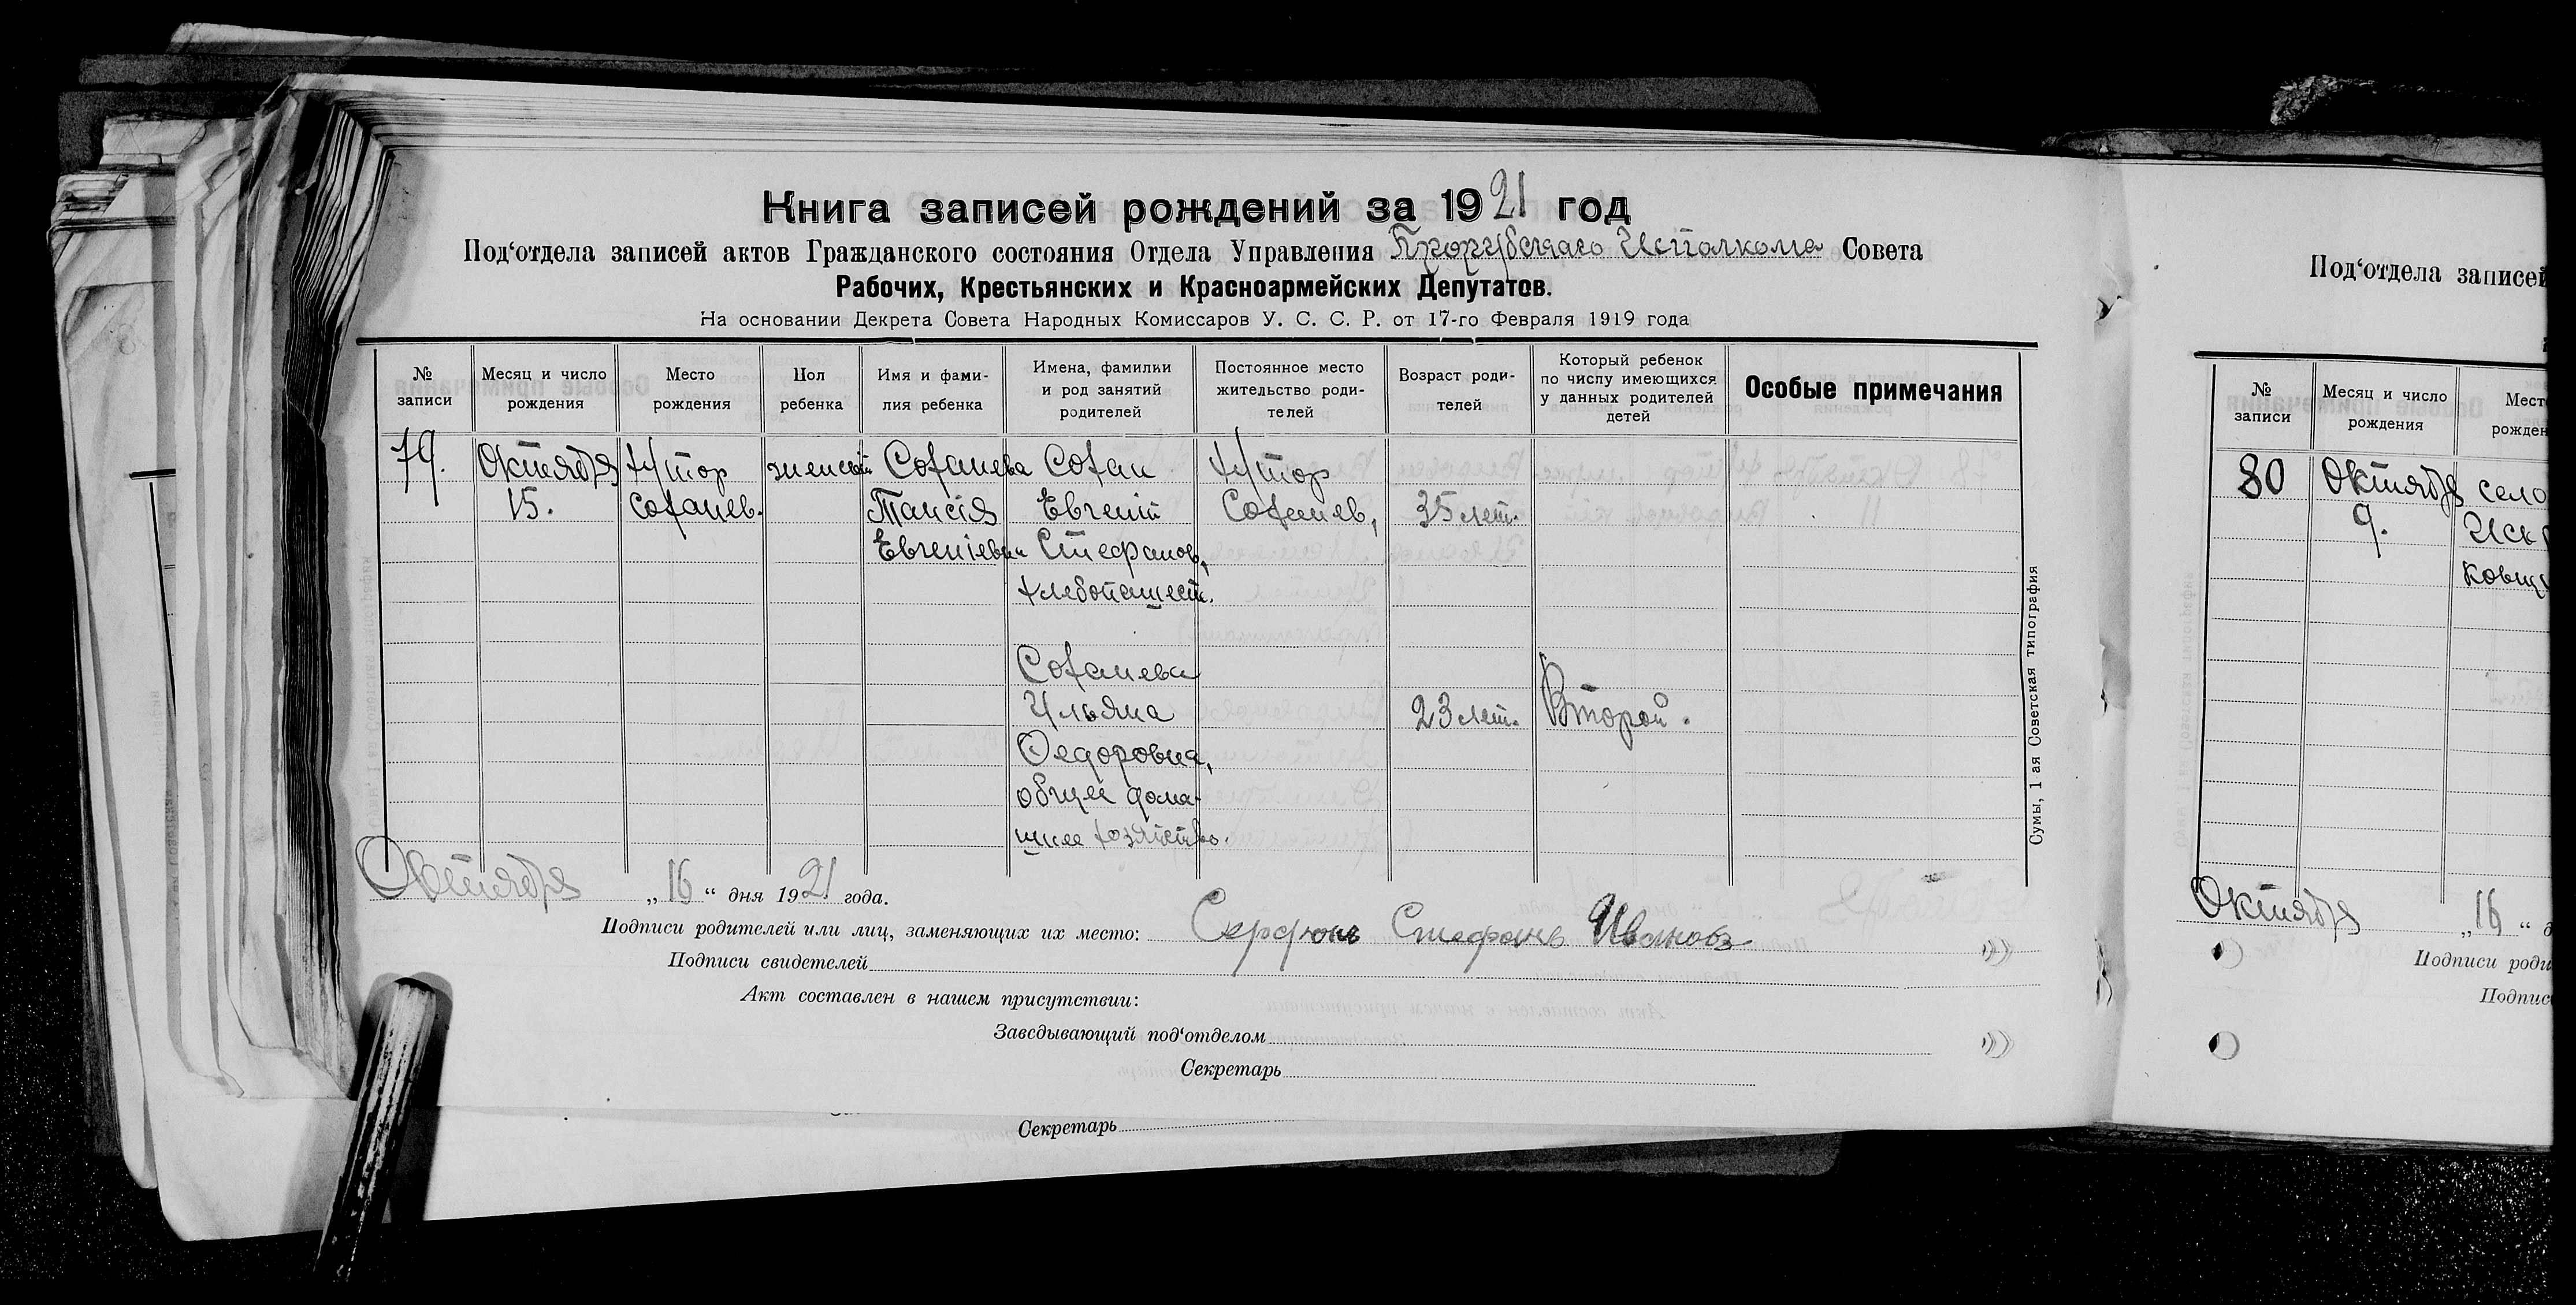 Книга записей рождений за 1921 год
Под‘отдела записей актов Гражданского состояния Отдела Управления Исполкома Совета
Рабочих, Крестьянских и Красноармейских Депутатов.
На основании Декрета Совета Народных Комиссаров У. С. С. Р. от 17-го Февраля 1919 года
№ записи
Месяц и число рождения
Место рождения
Пол ребенка
Имя и фами-
лия ребенка
Имена, фамилии
и род занятий
родителей
Постоянное место
жительство роди-
телей
Возраст роди-
телей
Который ребенок
по числу имеющихся
у данных родителей
детей
Особые примечания
79.
Октября
15.
хутор
Соханев.
женский
Соханева
Таисія
Евгеніевна
Сохан
Евгеній
Стефанов,
хлебопашест.
Соханева
Ульяна
Федоровна,
общее дома-
шнее хозяйство.
хутор
Соханев,
35 лет.
23 лет.
Второй.
Сумы, 1 ая Советская типография
Октября „16“ дня 1921 года.
Подписи родителей или лиц, заменяющих их место: Стефанъ Ивановъ
Подписи свидетелей
Акт составлен в нашем присутствии:
Заведывающий под‘отделом
Секретарь
Секретарь
Под‘отдела записей
№
записи
Месяц и число
рождения
Мест
рожден
80
Октября
9.
село
Иск
ковщ
Октября „16“ д
Подписи роди
Подпис